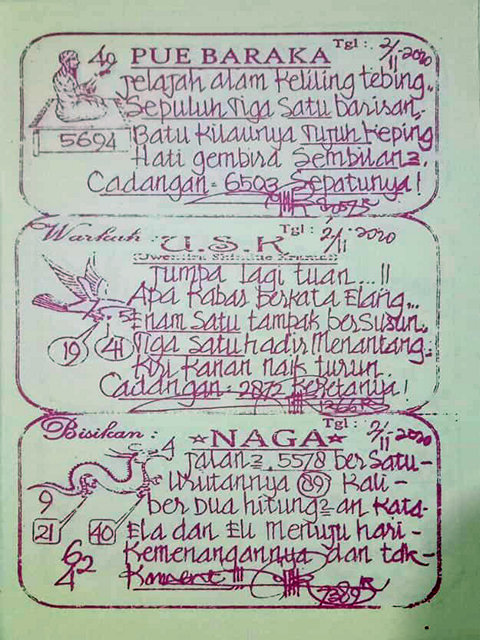 49 PUE BARAKA Tgl : 2/11-2020
jelajah alam keliling tebing..
Sepuluh Tiga Satu barisan,-
5694 Batu kilaunya Tujuh keping
Hati gembira Sembilan2.
Cadangan = 6503 Sepatunya !
Warkah : U.S.K Tgl : 2/11-2020
Jumpa lagi tuan...!!
Apa kabar berkata Elang...
Enam Satu tampak bersusun..
19 41 Tiga Satu hadir Menantang..
Kiri Kanan naik turun.
Cadangan = 2872 Keretanya !
Bisikan : NAGA Tgl : 2/11-2020
4 jalan2 . 5578 ber Satu-
Urutannya 89 Kali-
9 ber Dua hitung2-an Kata-
21 40 Ela dan Eli Menuju hari-
62 Kemenangannya dan tak-
4 Konsent !!!